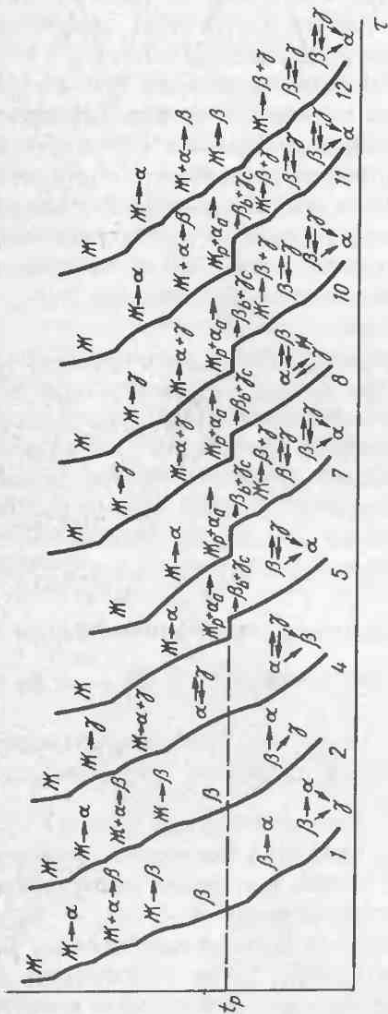 Ж
Ж→α
Ж+α→β
Ж→β
β
β→α
β→α
γ
1
Ж
Ж→α
Ж+α→β
Ж→β
β
β→α
γ
2
Ж
Ж→γ
Ж→α+γ
α⇌γ
α⇌γ
β
4
Ж
Ж→α
Жp+αa→
→βb+γc
β⇌γ
α
5
Ж
Ж→α
Жp+αa→
→βb+γc
Ж→β+γ
β⇌γ
β⇌γ
α
7
Ж
Ж→γ
Ж→α+γ
Жp+αa→
→βb+γc
α⇌β
γ
8
Ж
Ж→γ
Ж→α+γ
Жp+αa→
→βb+γc
Ж→β+γ
β⇌γ
β⇌γ
α
10
Ж
Ж→α
Ж+α→β
Жp+αa→
→βb+γc
Ж→β+γ
β⇌γ
β⇌γ
α
11
Ж
Ж→α
Ж+α→β
Ж→β
Ж→β+γ
β⇌γ
β⇌γ
α
12
tp
τ